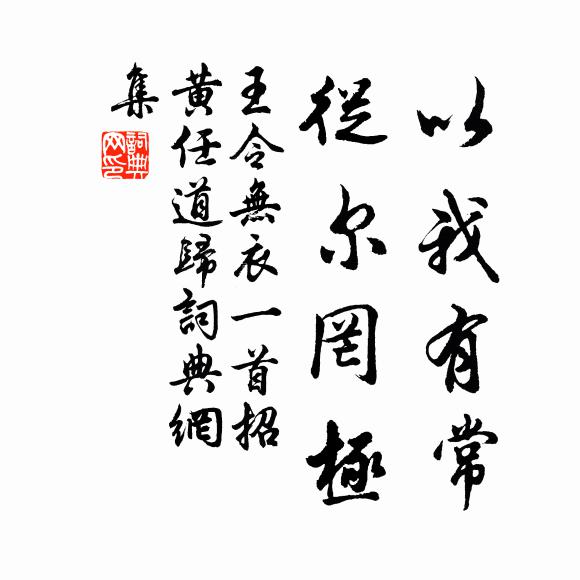 以我有常
從尔罔極
王令無衣一首招
黄任道歸詞典網
集
詞典
网印